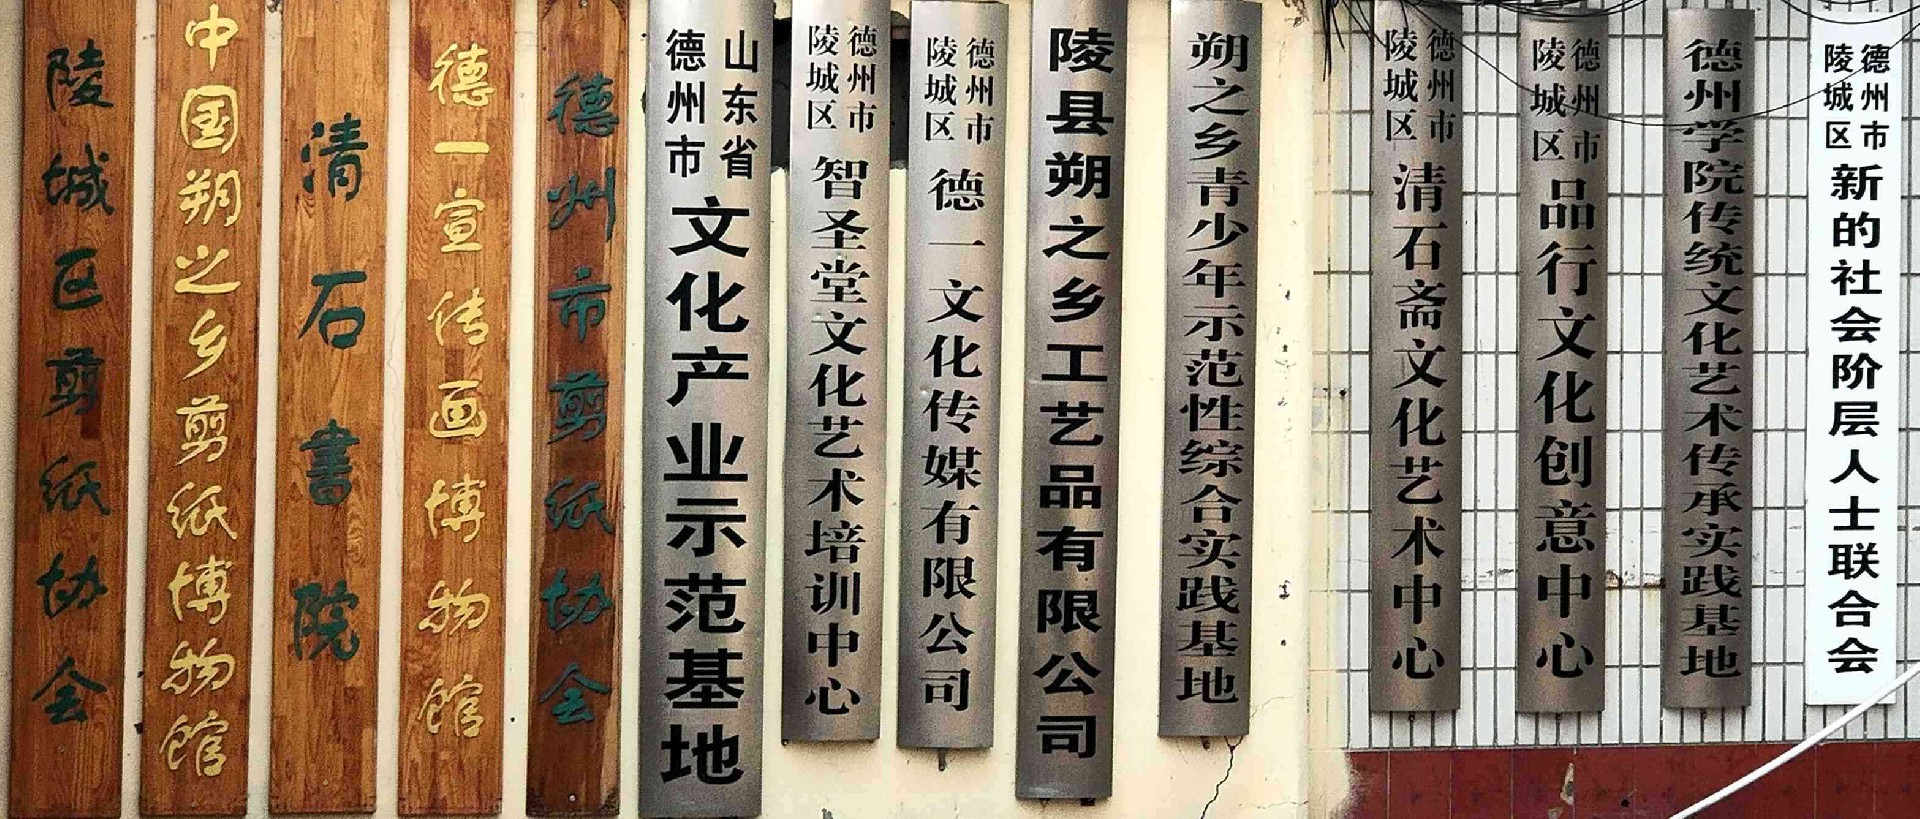 陵城区剪纸协会
中国朔之乡剪纸博物馆
清石書院
德一宣传画博物馆
德州市剪纸协会
山东省
德州市
文化产业示范基地
德州市
陵城区
智圣堂文化艺术培训中心
德州市
陵城区
德一文化传媒有限公司
陵县朔之乡工艺品有限公司
朔之乡青少年示范性综合实践基地
德州市
陵城区
清石斋文化艺术中心
德州市
陵城区
品行文化创意中心
德州学院传统文化艺术传承实践基地
德州市
陵城区
新的社会阶层人士联合会